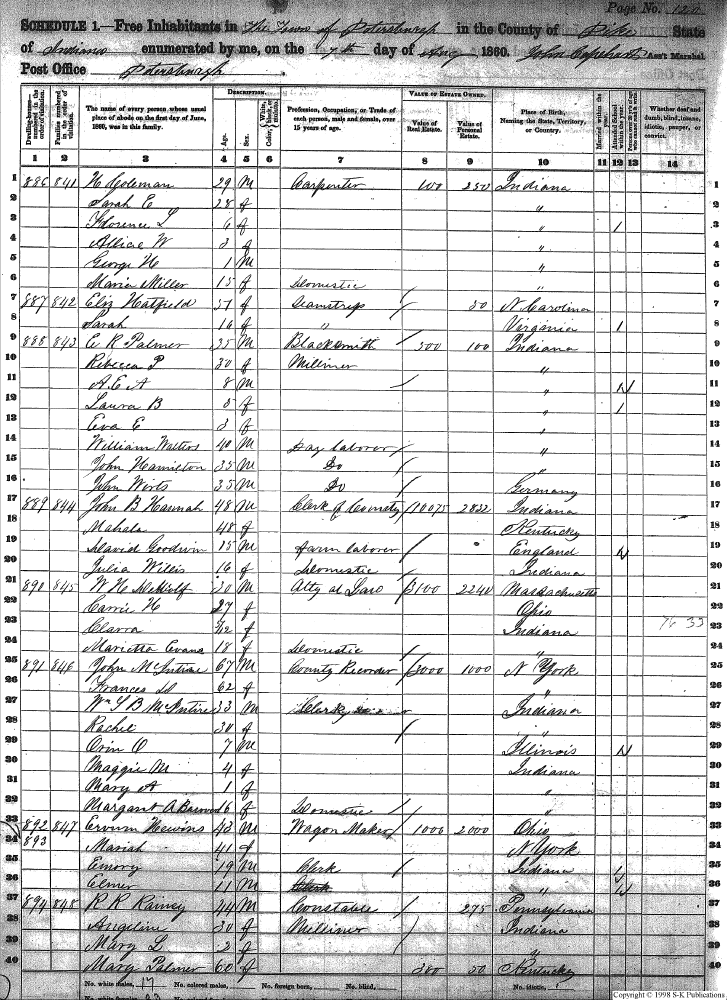 Page No. 120
SCHEDULE 1.—Free Inhabitants in The Town of Petersburgh in the County of Pike State
of Indiana enumerated by me, on the 7th day of Aug 1860. John Capehart Ass't Marshal.
Post Office Petersburgh
Dwelling-houses—numbered in the order of visitation. Families numbered in the order of visitation. The name of every person whose usual place of abode on the first day of June, 1860, was in this family. DESCRIPTION. Age. Sex. Color, White, black, or mulatto. Profession, Occupation, or Trade of each person, male and female, over 15 years of age. VALUE OF ESTATE OWNED. Value of Real Estate. Value of Personal Estate. Place of Birth, Naming the State, Territory, or Country. Married within the year. Attended School within the year. Whether deaf and dumb, blind, insane, idiotic, pauper, or convict.
1 2 3 4 5 6 7 8 9 10 11 12 13 14
1 886 841 H Coleman 29 M Carpenter 100 250 Indiana 1
2 Sarah E 28 f " 2
3 Florence L 6 f " / 3
4 Allice W 3 f " 4
5 George H 1 M " 5
6 Maria Miller 15 f Domestic " 6
7 887 842 Eliz Hatfield 51 f Seamstress / 50 N Carolina 7
8 Sarah 16 f " Virginia 1 8
9 888 843 E R Palmer 35 M Blacksmith / 500 100 Indiana 9
10 Rebecca P 30 f Milliner " 10
11 A. E A 8 M / " N 11
12 Laura B 5 f " / 12
13 Eva E 3 f " 13
14 William Walters 40 M Day laborer / " 14
15 John Hamilton 35 M Do / " 15
16 John Wirts 35 M Do / Germany 16
17 889 844 John B Hannah 48 M Clerk of County / 10075 2822 Indiana 17
18 Mahala 48 f Kentucky 18
19 David Goodwin 15 M Farm laborer / England N 19
20 Julia Willis 16 f Domestic / Indiana 20
21 890 845 30 M Atty at Law / 3100 2240 Massachusetts 21
22 Carrie H 27 f Ohio 22
23 Clarra /12 f Indiana 23
24 Marietta Evans 18 f Domestic / " 24
25 891 846 John McIntire 67 M County Recorder / 3000 1000 N York 25
26 Frances D 62 f " 26
27 Wm B McIntire 33 M Clerk Indiana 27
28 Rachel 30 f / " 28
29 Orin O 7 M Illinois N 29
30 Maggie M 4 f Indiana 30
31 Mary A 1 f " 31
32 Margaret A 16 f Domestic / " 32
33 892 847 Hewins 43 M Wagon Maker / 1000 2000 Ohio 33
34 893 Mariah 41 f N York 34
35 Emory 19 M Clerk / Indiana 35
36 Elmer 11 M Clerk " N 36
37 894 848 R R Rainey 44 M Constable / 275 Pennsylvania 37
38 Angeline 30 f Milliner / Indiana 38
39 Mary L 2 f " 39
40 Mary Palmer 60 f 380 50 Kentucky 40
No. white males, 17 No. colored males, No. foreign born, No. blind, No. idiotic,
Copyright © 1998 S-K Publications